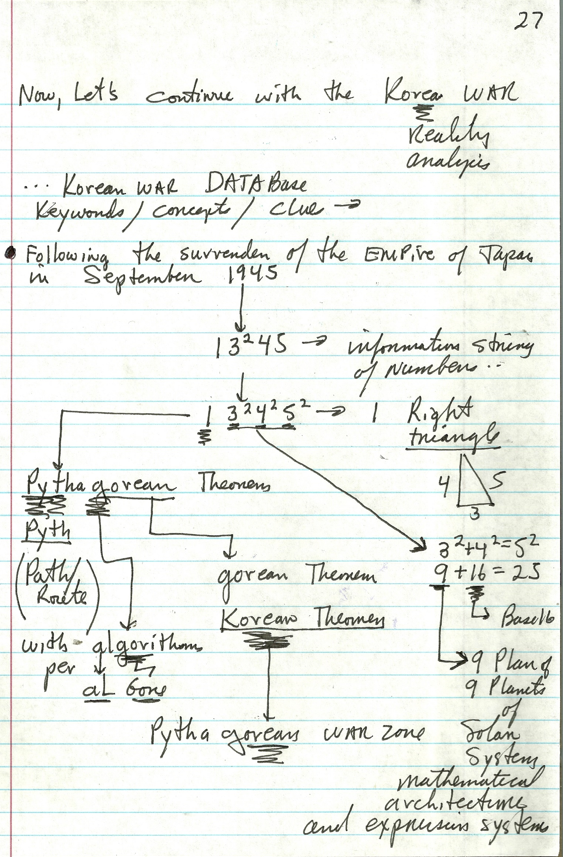 27
Now, Let's continue with the Korean WAR
Reality
analysis
... Korean WAR DATABase
Keywords / concepts / clue →
• Following the surrender of the EMPire of Japan
in September 1945
13²45 → information string
of numbers ..
1 3²4²5² → 1 Right
triangle
4 5
3
Pythagorean Theorem
Pyth
(Path/
Route)
3²+4²=5²
9+16=25
gorean Theorem
Base16
Korean Theorem
with - algorithm
per
aL Gore
9 Plan of
9 Planets
of
Pythagorean WAR zone Solar
System
mathematical
architecture
and expression system